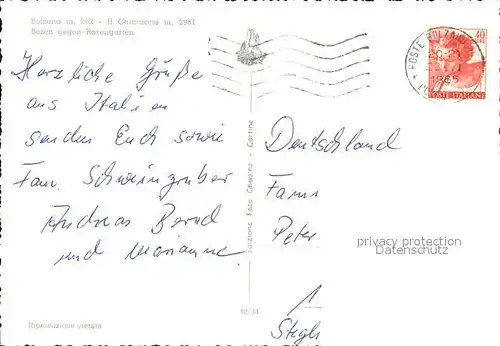 Bolzano m. 262 - Il Catinaccio m. 2981
Bozen gegen Rosengarten
40
POSTE BOLZANO
POSTE ITALIANE
Herzliche Grüße
aus Italien
senden Euch sowie
Fam. Schweingruber
Andreas Bernd
und Marianne.
Deutschland
Fam
Peter
1
Edizione Foto Ghedina - Cortina
privacy protection
Datenschutz
Riproduzione vietata